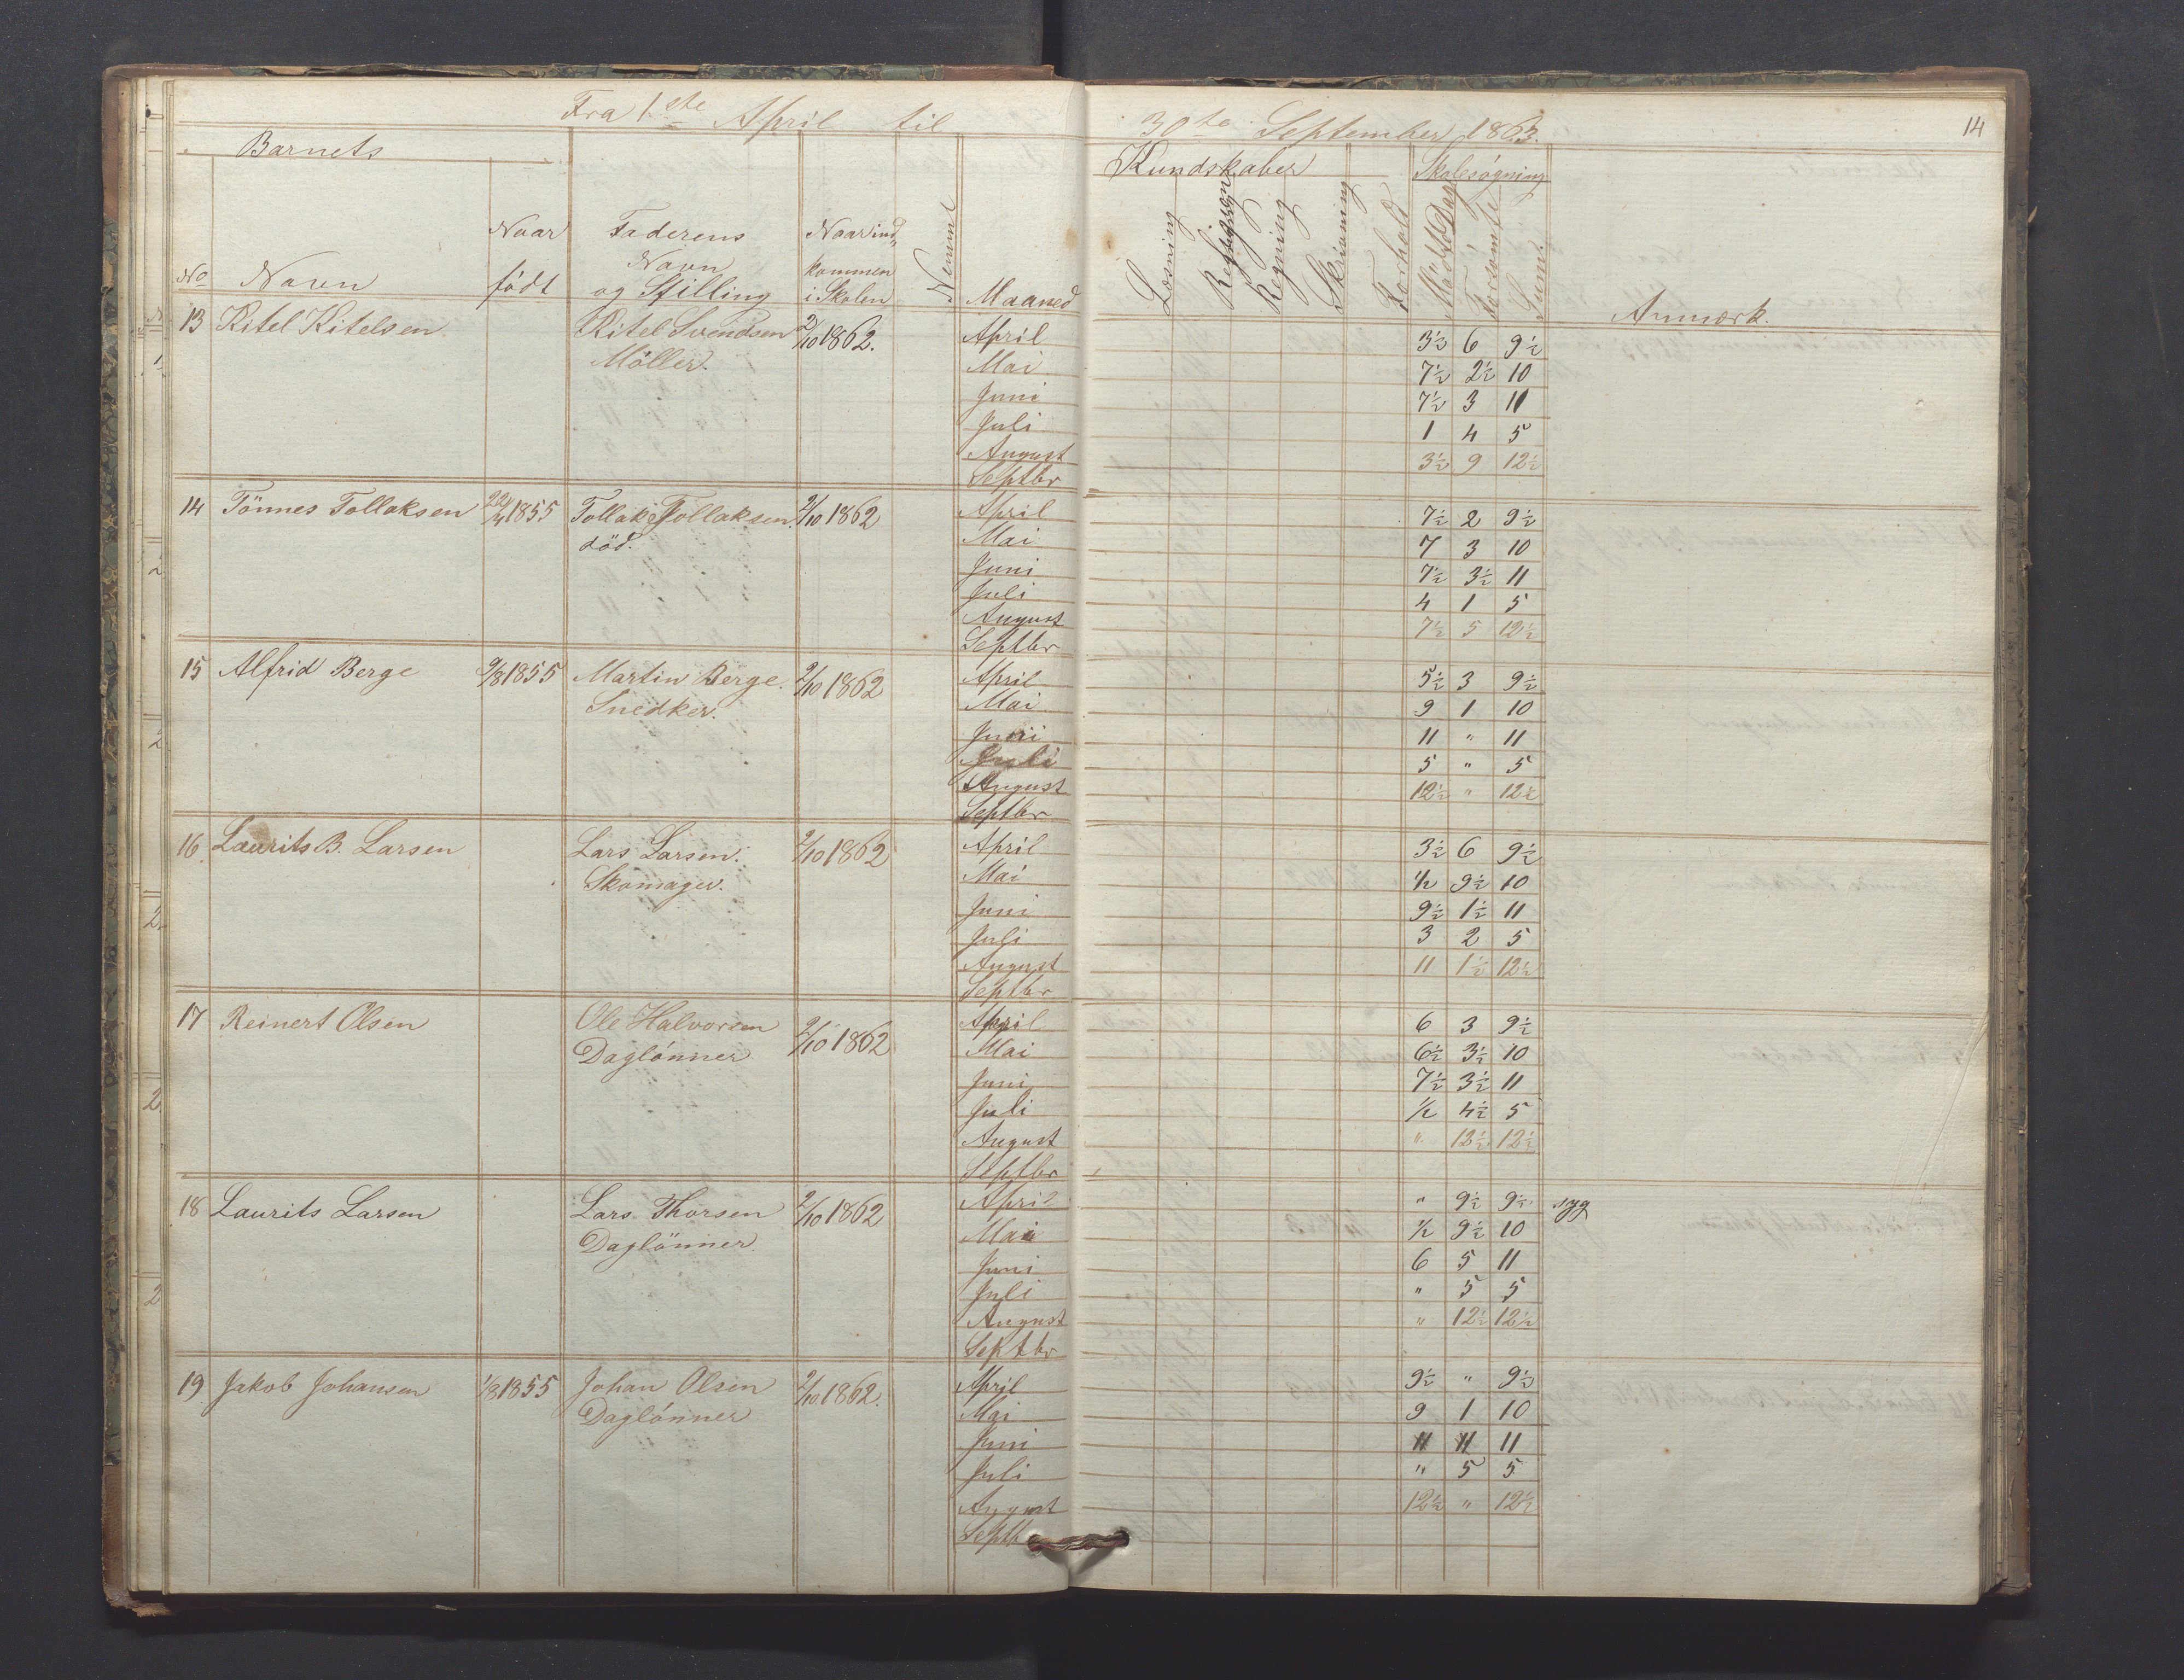 Fra 1ste April til 30te September 1863.
14
Barnets
Kundskaber Skolesøgning
No Navn Naar født Faderens Navn og Stilling Naar ind- kommen i Skolen Maaned Læsning Religion Regning Skrivning Forhold Mødte Dage Forsømte Sum Anmærk.
13 Kitel Kitelsen Kitel Svendsen 2/10 1862. April 3½ 6 9½
Møller. Mai 7½ 2½ 10
Juni 7½ 3 11
Juli 1 4 5
August 3½ 9 12½
Septbr
14 Tönnes Tollaksen 22/4 1855 Tollak Tollaksen 2/10 1862 April 7½ 2 9½
död. Mai 7 3 10
Juni 7½ 3½ 11
Juli 4 1 5
August 7½ 5 12½
Septbr
15 Alfrid Berge 9/8 1855 Martin Berge. 2/10 1862 April 5½ 3 9½
Snedker. Mai 9 1 10
Juni 11 " 11
Juli 5 " 5
August 12½ " 12½
Septbr
16. Laurits B. Larsen Lars Larsen. 2/10 1862 April 3½ 6 9½
Skomager. Mai ½ 9½ 10
Juni 9½ 1½ 11
Juli 3 2 5
August 11 1½ 12½
Septbr
17 Reinert Olsen Ole Halvorsen 2/10 1862 April 6 3 9½
Daglönner Mai 6½ 3½ 10
Juni 7½ 3½ 11
Juli ½ 4½ 5
August " 12½ 12½
Septbr
18 Laurits Larsen Lars Thorsen 2/10 1862 April " 9½ 9½ syg
Daglönner. Mai ½ 9½ 10
Juni 6 5 11
Juli " 5 5
August " 12½ 12½
Septbr
19 Jakob Johansen 1/8 1855 Johan Olsen 2/10 1862. April 9½ " 9½
Daglönner Mai 9 1 10
Juni 11 11 11
Juli " 5 5
August 12½ " 12½
Septbr